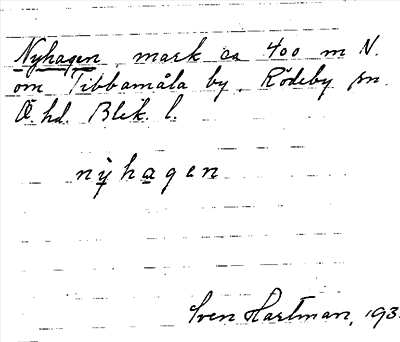 Nyhagen, mark ca 400 m N.
om Tibbamåla by, Rödeby sn
Ö. hd. Blek. l.
nỳhagen
Sven Hartman, 193